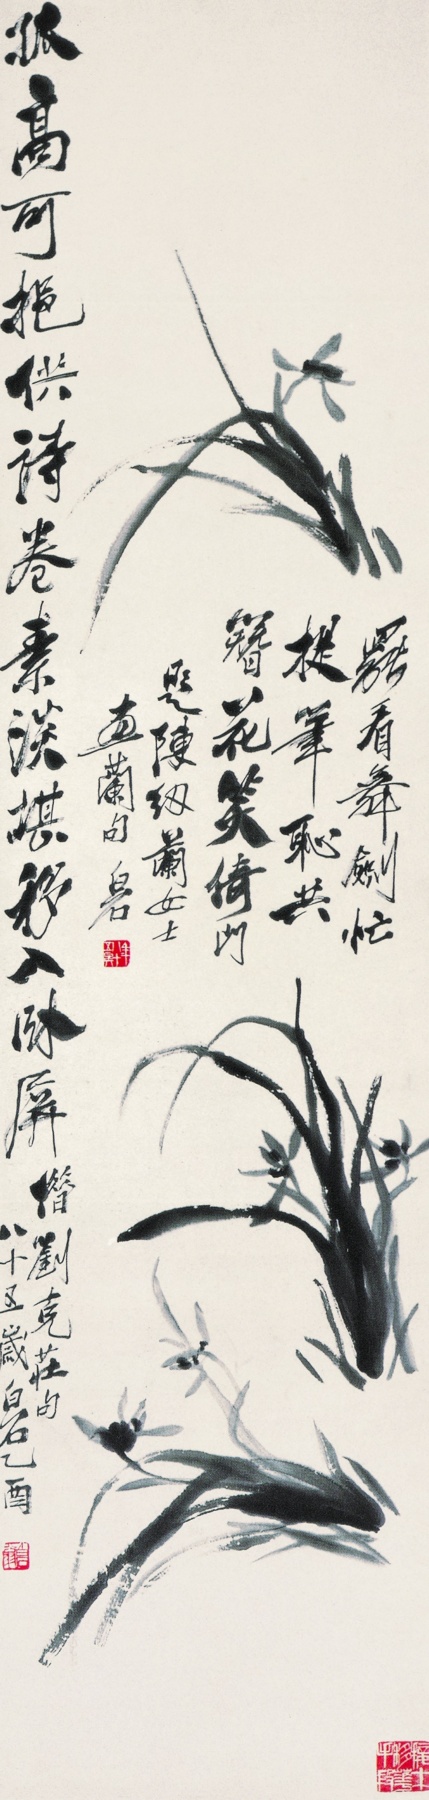 罷看舞劍忙
提筆恥共
簪花笑倚門
題陳紉蘭女士
畫蘭句 白石
孤高可挹供詩卷素淡堪移入臥屏 僭劉克莊句
八十五歲白石乙酉